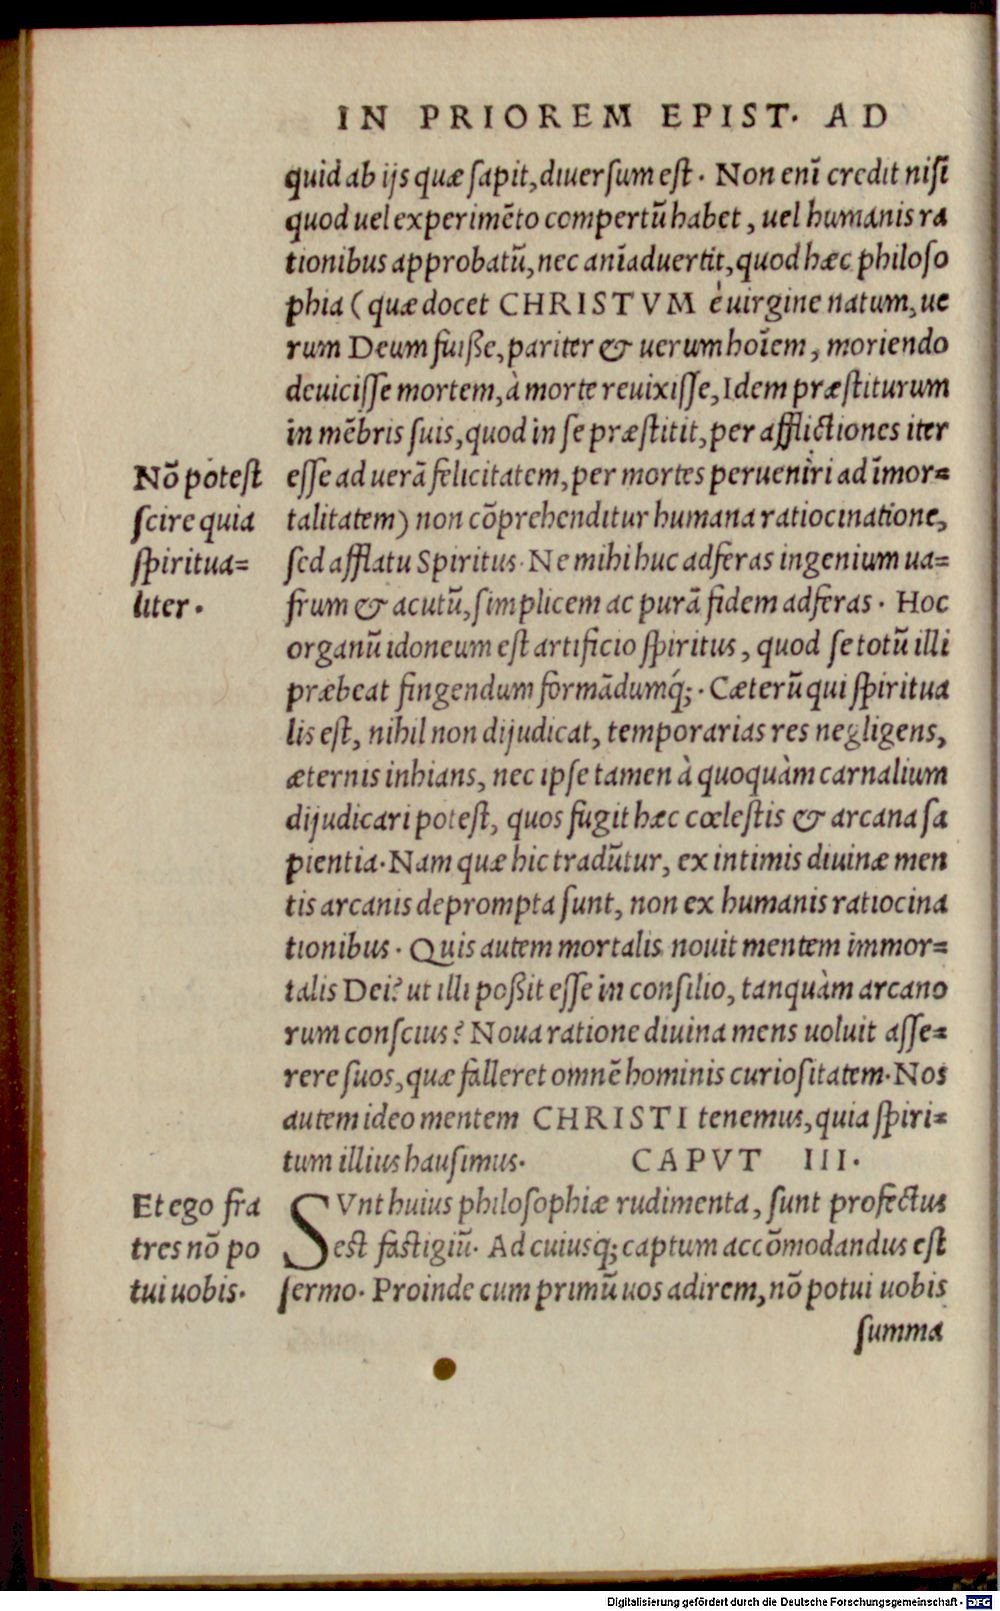 IN PRIOREM EPIST. AD
quid ab ijs quæ ſapit, diuerſum eſt. Non enĩ credit niſi
quod uel experimẽto compertũ habet, uel humanis ra
tionibus approbatũ, nec anĩaduertit, quod hæc philoſo
phia (quæ docet CHRISTVM è uirgine natum, ue
rum Deum fuiße, pariter & uerum hoĩem, moriendo
deuiciſſe mortem, à morte reuixiſſe, Idem præſtiturum
in mẽbris ſuis, quod in ſe præſtitit, per afflictiones iter
Nõ poteſt
ſcire quia
ſpiritua=
liter.
eſſe ad uerã felicitatem, per mortes perueniri ad ĩmor=
talitatem) non cõprehenditur humana ratiocinatione,
ſed afflatu Spiritus. Ne mihi huc adferas ingenium ua=
frum & acutũ, ſimplicem ac purã fidem adferas. Hoc
organũ idoneum eſt artificio ſpiritus, quod ſe totũ illi
præbeat fingendum formãdumq́;. Cæterũ qui ſpiritua
lis eſt, nihil non dijudicat, temporarias res negligens,
æternis inhians, nec ipſe tamen à quoquàm carnalium
dijudicari poteſt, quos fugit hæc cœleſtis & arcana ſa
pientia. Nam quæ hic tradũtur, ex intimis diuinæ men
tis arcanis deprompta ſunt, non ex humanis ratiocina
tionibus. Quis autem mortalis nouit mentem immor=
talis Dei? ut illi poßit eſſe in conſilio, tanquàm arcano
rum conſcius? Noua ratione diuina mens uoluit aſſe=
rere ſuos, quæ falleret omnẽ hominis curioſitatem. Nos
autem ideo mentem CHRISTI tenemus, quia ſpiri=
tum illius hauſimus. CAPVT III.
Et ego fra
tres nõ po
tui uobis.
SVnt huius philoſophiæ rudimenta, ſunt profectus
eſt faſtigiũ. Ad cuiusq; captum accõmodandus eſt
ſermo. Proinde cum primũ uos adirem, nõ potui uobis
ſumma
Digitalisierung gefördert durch die Deutsche Forschungsgemeinschaft - DFG